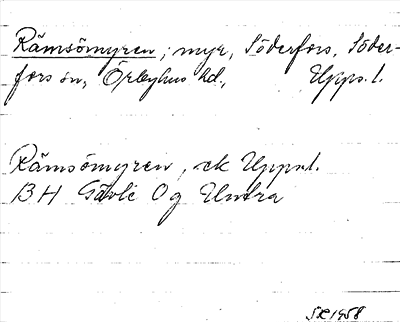 Rämsömyren, myr, Söderfors, Söder-
fors sn, Örbyhus hd., Upps. l.
Rämsömyren, ek Upps.l.
BH Gävle Og Untra
SK 1958